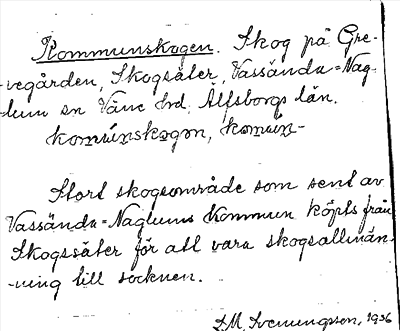 Kommunskogen. Skog på Gre-
-vegården, Skogsäter, Vassända-Nag-
-lum sn Väne hd. Älfsborgs län.
komúnskogon, komún-
Stort skogsområde som sent av
Vassända-Naglums kommun köpts från
Skogssäter för att vara skogsallmän-
-ning till socknen.
D.M. Svenungsson, 1936